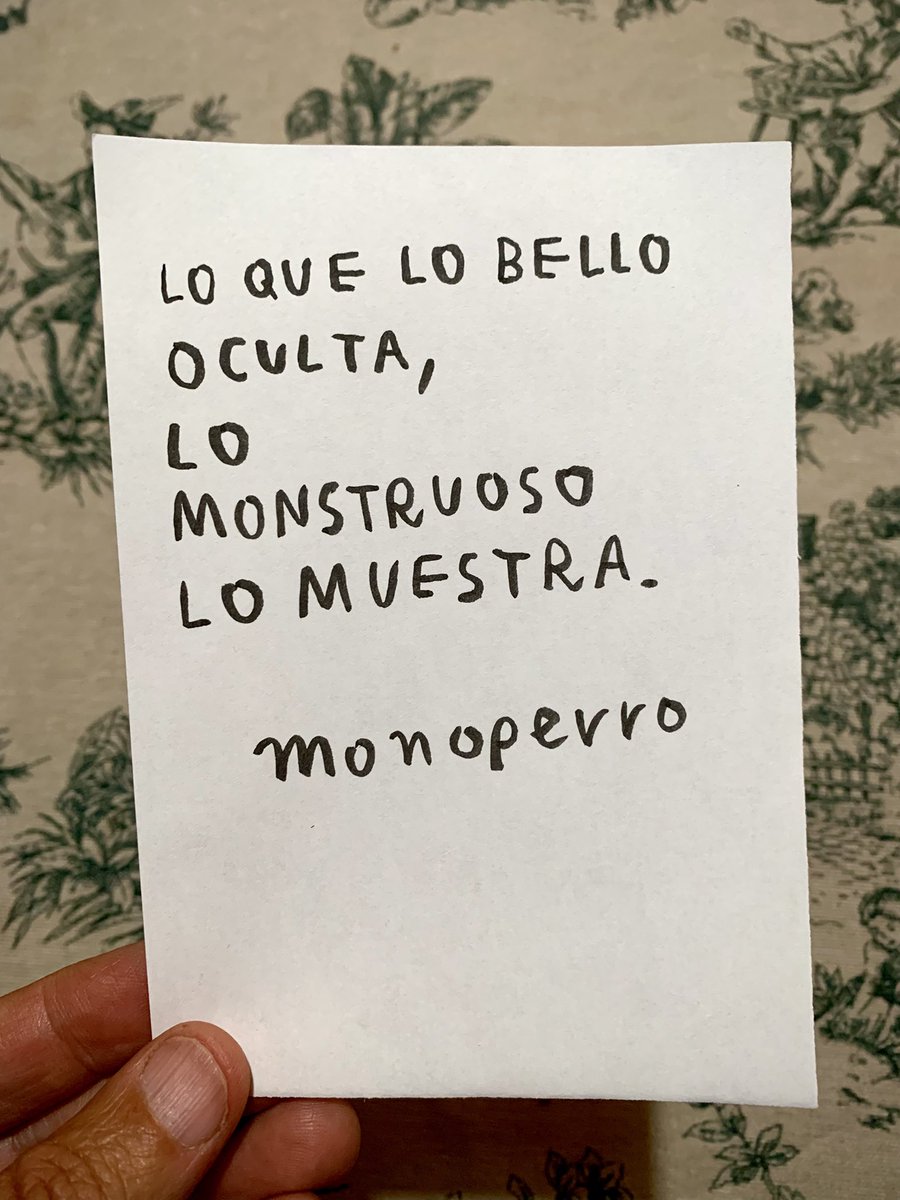 LO QUE LO BELLO
OCULTA,
LO
MONSTRUOSO
LO MUESTRA.
monoperro